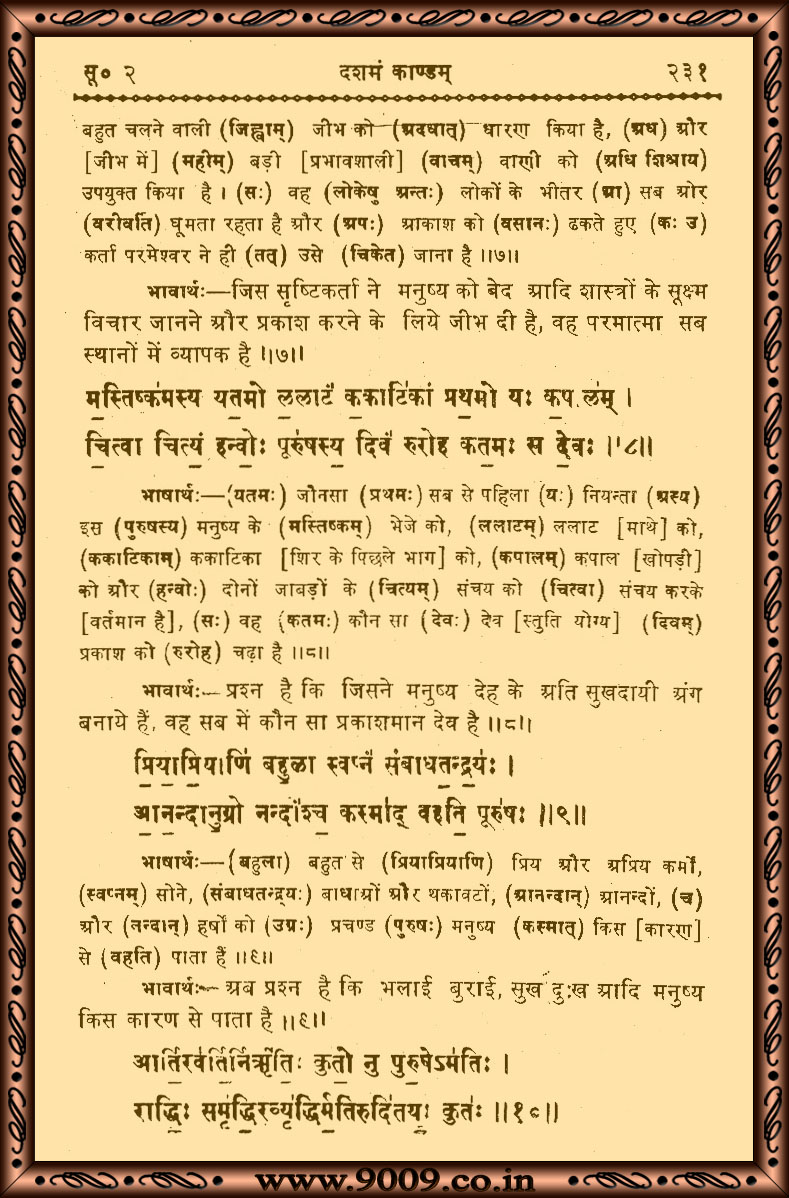 सू० २ दशमं काण्डम् २३१
बहुत चलने वाली (जिह्वाम्) जीभ को (अदधात्) धारण किया है, (अध) और
[जीभ में] (महीम्) बड़ी [प्रभावशाली] (वाचम्) वाणी को (अधि शिश्राय)
उपयुक्त किया है। (सः) वह (लोकेषु अन्तः) लोकों के भीतर (आ) सब ओर
(वरीवर्ति) घूमता रहता है और (अपः) आकाश को (वसानः) ढकते हुए (कः उ)
कर्ता परमेश्वर ने ही (तत्) उसे (चिकेत) जाना है ॥७॥
भावार्थः—जिस सृष्टिकर्ता ने मनुष्य को बेद आदि शास्त्रों के सूक्ष्म
विचार जानने और प्रकाश करने के लिये जीभ दी है, वह परमात्मा सब
स्थानों में व्यापक है ॥७॥
म॒स्तिष्क॑मस्य यत॒मो ल॒लाटं॑ क॒काटि॑कां प्रथ॒मो यः क॒पाल॑म् ।
चि॒त्वा चित्यं॒ हन्वोः॒ पूरु॑षस्य॒ दिवं॑ रुरोह कत॒मः स दे॒वः ॥८॥
भाषार्थः—(यतमः) जौनसा (प्रथमः) सब से पहिला (यः) नियन्ता (अस्य)
इस (पुरुषस्य) मनुष्य के (मस्तिष्कम्) भेजे को, (ललाटम्) ललाट [माथे] को,
(ककाटिकाम्) ककाटिका [शिर के पिछले भाग] को, (कपालम्) कपाल [खोपड़ी]
को और (हन्वोः) दोनों जाबड़ों के (चित्यम्) संचय को (चित्वा) संचय करके
[वर्तमान है], (सः) वह (कतमः) कौन सा (देवः) देव [स्तुति योग्य] (दिवम्)
प्रकाश को (रुरोह) चढ़ा है ॥८॥
भावार्थः—प्रश्न है कि जिसने मनुष्य देह के अति सुखदायी अंग
बनाये हैं, वह सब में कौन सा प्रकाशमान देव है ॥८॥
प्रि॒या॒प्रि॒याणि॑ बहु॒ला स्वप्नं॑ संबाधत॒न्द्र्यः॑ ।
आ॒न॒न्दानु॒ग्रो नन्दां॑श्च॒ कस्मा॑द् वहति॒ पूरु॑षः ॥९॥
भाषार्थः—(बहुला) बहुत से (प्रियाप्रियाणि) प्रिय और अप्रिय कर्मों,
(स्वप्नम्) सोने, (संबाधतन्द्र्यः) बाधाओं और थकावटों, (आनन्दान्) आनन्दों, (च)
और (नन्दान्) हर्षों को (उग्रः) प्रचण्ड (पुरुषः) मनुष्य (कस्मात्) किस [कारण]
से (वहति) पाता हैं ॥९॥
भावार्थः—अब प्रश्न है कि भलाई बुराई, सुख दुःख आदि मनुष्य
किस कारण से पाता है ॥९॥
आर्ति॒रव॑र्ति॒र्निर्ऋ॑तिः॒ कुतो॒ नु पुरु॒षेऽम॑तिः ।
राद्धिः॒ समृ॑द्धि॒रव्यृ॑द्धिर्म॒तिरुदि॑तयः॒ कुतः॑ ॥१०॥
www.9009.co.in